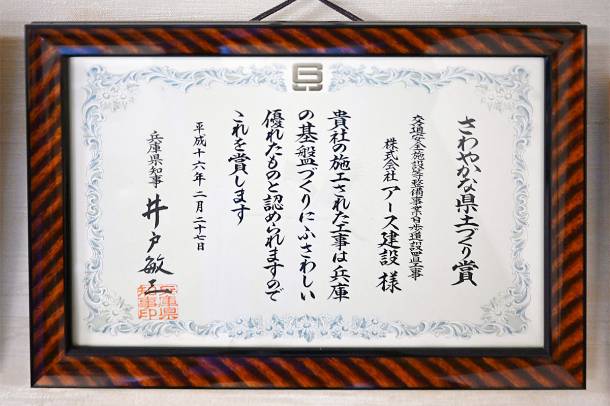 さわやかな県土づくり賞
交通安全施設等整備事業自歩道設置工事
株式会社 アース建設 様
貴社の施工された工事は兵庫
の基盤づくりにふさわしい
優れたものと認められますので
これを賞します
平成十六年二月二十七日
兵庫県知事 井戸敏三
兵庫県
知事印